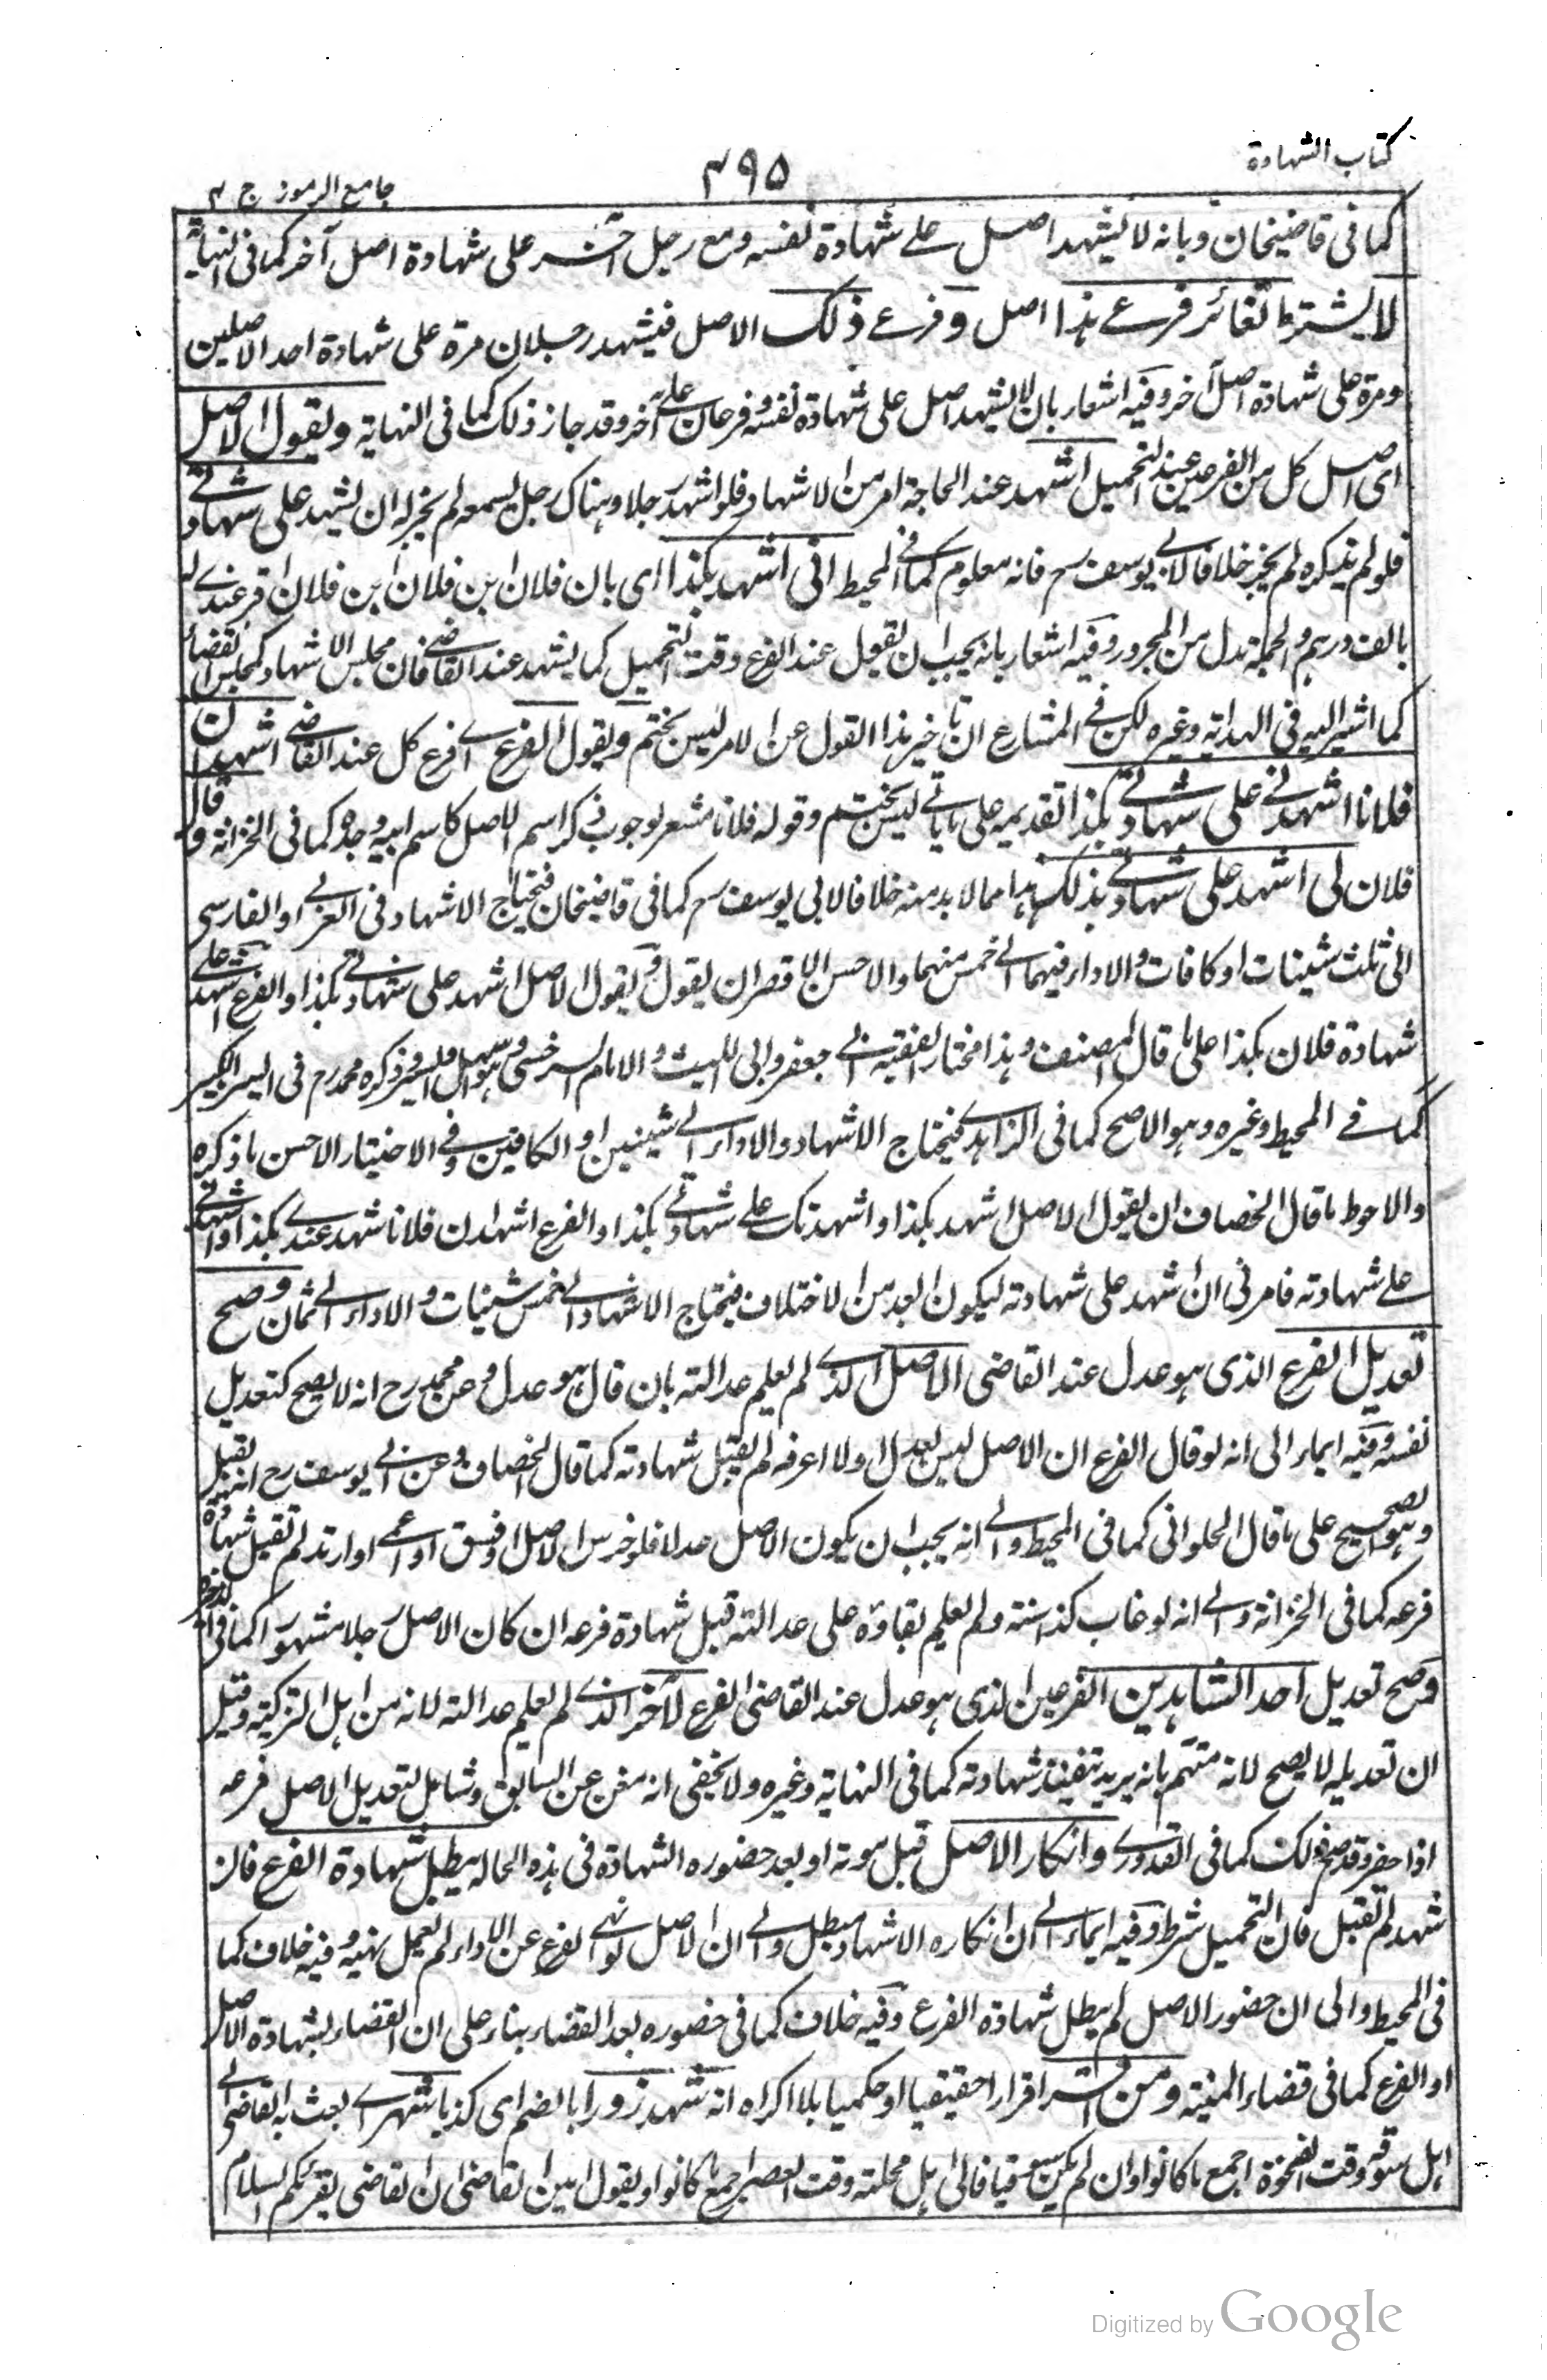 كتاب الشهادة
٣٩٥
جامع الرموز ج ٣
كما فى قاضيخان وبانه لا يشهد اصل على شهادة نفسه ومع رجل آخر على شهادة اصل آخر كما فى النهاية
لا يشترط تغائر فرعى هذا اصل وفرعى ذلك الاصل فيشهد رجلان مرة على شهادة احد الاصلين
ومرة على شهادة اصل آخر وفيه اشعار بان لا يشهد اصل على شهادة نفسه وفرعان على آخر وقد جاز ذلك كما فى النهاية ويقول الاصل
اى اصل كل من الفرعين عند التحميل اشهد عند الحاجة امر من الاشهاد فلو اشهد رجلا وهناك رجل يسمعه لم يجز له ان يشهد على شهادتى
فلو لم يذكره لم يجز خلافا لابى يوسف رح فانه معلوم كما فى المحيط انى اشهد بكذا اى بان فلان ابن فلان ابن فلان اقر عندى له
بالف درهم والجملة بدل من المجرور وفيه اشعار بانه يجب ان يقول عند الفرع وقت التحميل كما يشهد عند القاضى فان مجلس الاشهاد كمجلس القضاء
كما اشير اليه فى الهداية وغيره لكن فى المشارع ان تاخير هذا القول عن الامر ليس بختم ويقول الفرع اى فرع كل عند القاضى اشهد ان
فلانا اشهدنى على شهادته بكذا تقديمه على ما ياتى ليس بختم وقوله فلانا مشعر بوجوب ذكر اسم الاصل كاسم ابيه وجده كما فى الخزانة وقال
فلان لى اشهد على شهادتى بذلك هذا مما لا بد منه خلافا لابى يوسف رح كما فى قاضيخان فيحتاج الاشهاد فى العربى او الفارسى
الى ثلث شينات او كافات والاداء فيهما الى خمس منهما والاحسن الاقصر ان يقول ويقول الاصل اشهد على شهادتى بكذا والفرع اشهد على
شهادة فلان بكذا على ما قال المصنف وهذا مختار الفقيه ابى جعفر وابى الليث والامام السرخسى وهو اسهل وايسر وذكره محمد رح فى السير الكبير
كما فى المحيط وغيره وهو الاصح كما فى الزاهدى فيحتاج الاشهاد والاداء الى شينين او الكافين وفى الاختيار الاحسن ما ذكره
والاحوط ما قال الخصاف ان يقول الاصل اشهد بكذا واشهدتك على شهادتى بكذا والفرع اشهد ان فلانا شهد عندى بكذا واشهدنى
على شهادته فامرنى ان اشهد على شهادته ليكون ابعد من الاختلاف فيحتاج الاشهاد الى خمس شينات والاداء الى ثمان وصح
تعديل الفرع الذى هو عدل عند القاضى الاصل الذى لم يعلم عدالته بان قال هو عدل وعن محمد رح انه لا يصح كتعديل
نفسه وفيه ايماء الى انه لو قال الفرع ان الاصل ليس بعدل او لا اعرفه لم يقبل شهادته كما قال الخصاف وعن ابى يوسف رح انه يقبل
وهو الصحيح على ما قال الحلوانى كما فى المحيط والى انه يجب ان يكون الاصل عدلا فلو خرس الاصل او فسق او عمى او ارتد لم تقبل شهادة
فرعه كما فى الخزانة والى انه لو غاب كذا سنة ولم يعلم بقاؤه على عدالته قبل شهادة فرعه ان كان الاصل رجلا مشهورا كما فى الذخيرة
وصح تعديل احد الشاهدين الفرعين الذى هو عدل عند القاضى الفرع الآخر الذى لم يعلم عدالته لانه من اهل التزكية وقيل
ان تعديله لا يصح لانه متهم بانه يريد تنفيذ شهادته كما فى النهاية وغيره ولا يخفى انه مغن عن السابق وشامل لتعديل الاصل فرعه
اذا حضر وقد صح ذلك كما فى القدورى وانكار الاصل قبل موته او بعد حضوره الشهادة فى هذه الحالة يبطل شهادة الفرع فان
شهد لم تقبل فان التحميل شرط وفيه ايماء الى ان انكاره الاشهاد مبطل والى ان الاصل لو نهى الفرع عن الاداء لم يعمل نهيه وفيه خلاف كما
فى المحيط والى ان حضور الاصل لم يبطل شهادة الفرع وفيه خلاف كما فى حضوره بعد القضاء بناء على ان القضاء بشهادة الاصل
او الفرع كما فى قضاء المنية ومن اقر اقرارا حقيقيا او حكميا بلا اكراه انه شهد زورا بالضم اى كذبا شهر اى بعث به القاضى الى
اهل سوقه وقت الضحوة اجمع ما كانوا وان لم يكن سوقيا فالى اهل محلته وقت العصر اجمع ما كانوا ويقول امين القاضى ان القاضى يقرئكم السلام
Digitized by Google